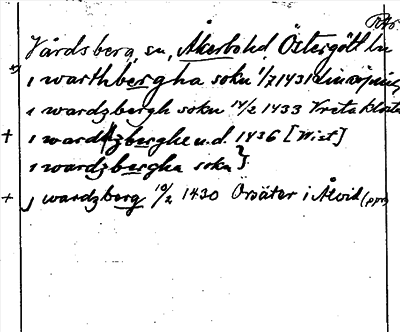 RAp.
Vårdsberg, sn, Åkerbo hd, Östergötl. län
i warthbergha sokn 1/7 1431
i wardzbergh sokn 14/2 1433 Vreta kloster
+ i wardzberghe u.d. 1436 [Wist]
i wardzbergha sokn }
+ j wardzberg 10/2 1430 Orsäter i Åtvid (ppr)